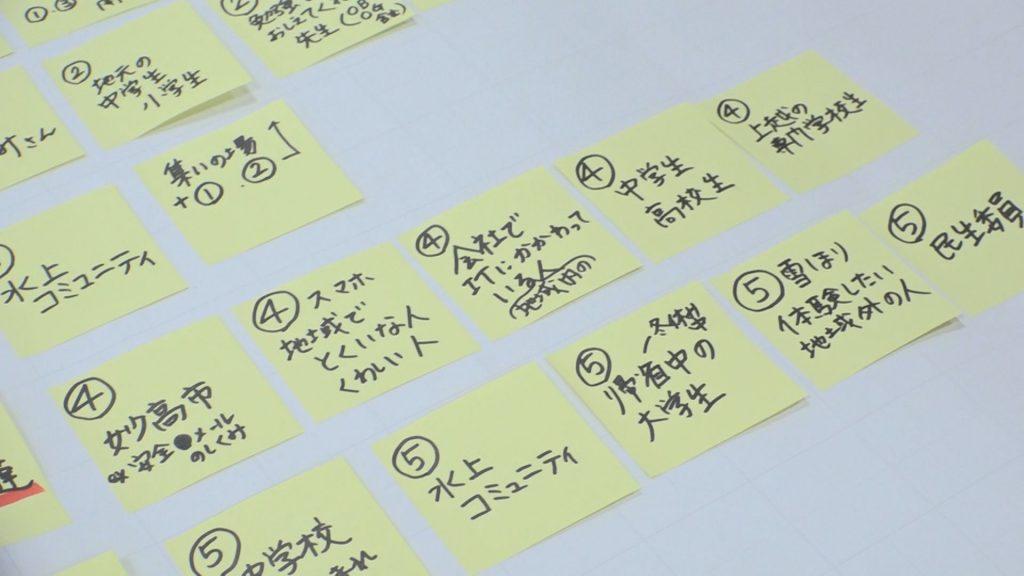 ② 地元の
中学生
小学生
おしえてくれる
先生
集いの場
+① ②
水上
コミュニティ
④ 妙高市
ex 安全●メール
のしくみ
④ スマホ
地域で
とくいな人
くわしい人
④ 会社で
ITにかかわって
いる人
(地域内の
④ 中学生
高校生
④ 上越の
専門学校生
⑤ 中学校
⑤ 水上
コミュニティ
⑤ 帰省中の
大学生
⑤ 雪ほり
体験したい
地域外の人
⑤ 民生委員